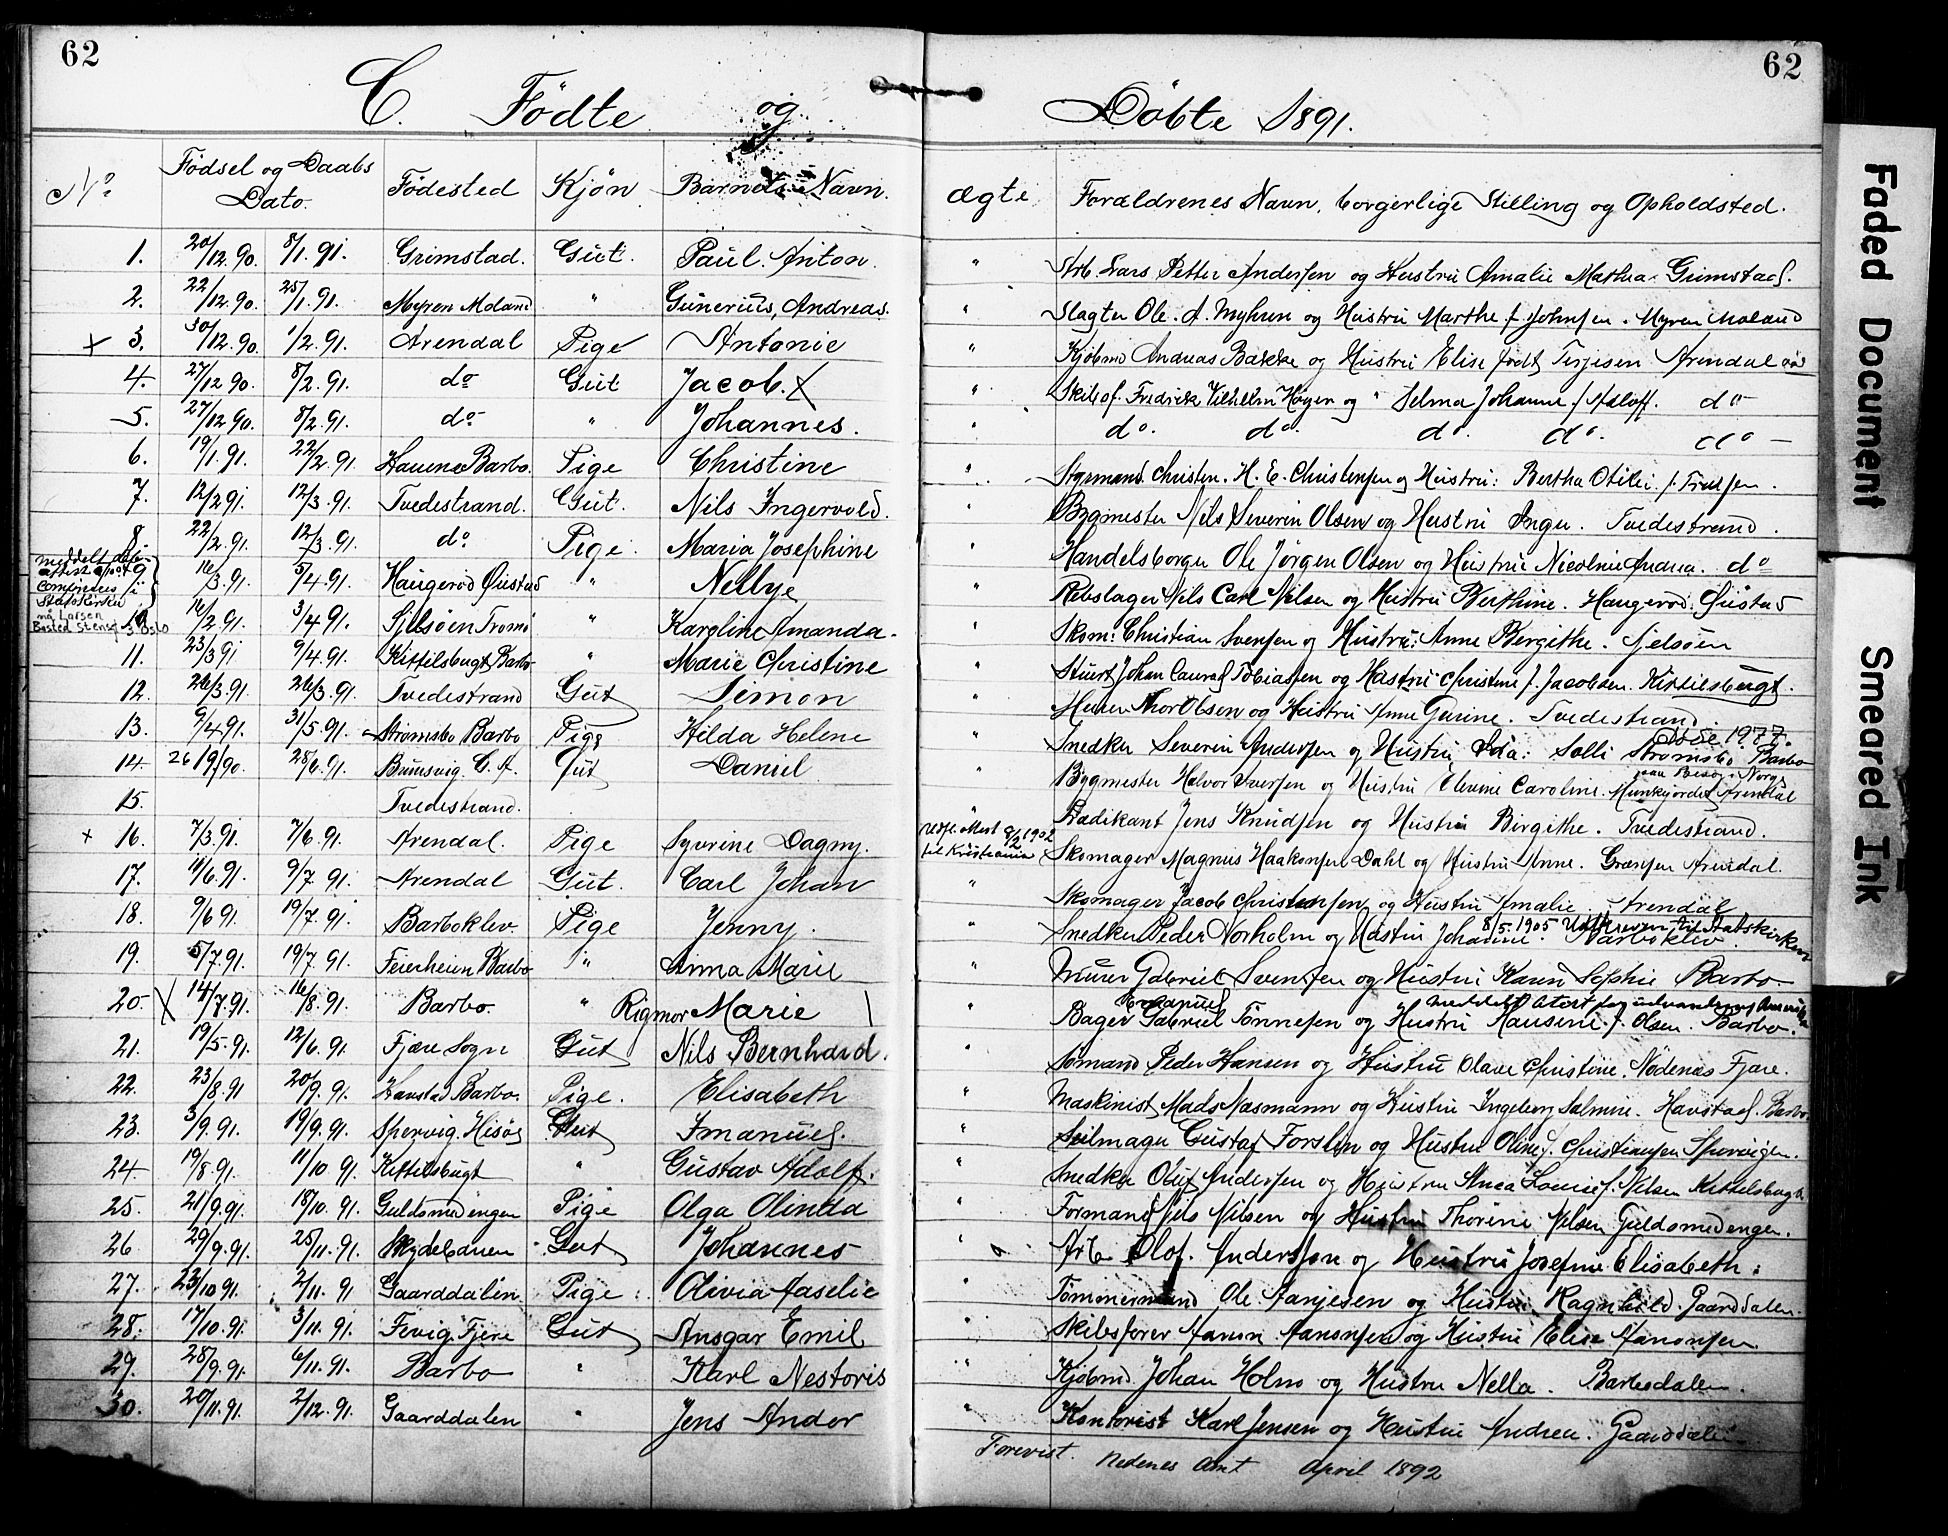 62
62
C. Födte og Döbte 1891.
No Födsel og Daabs Dato. Födested Kjön Barnets Navn. ægte Forældrenes Navn, borgerlige Stilling og Opholdsted.
1. 20/12.90. 8/1.91. Grimstad. Gut. Paul. Anton. " Arb. Lars Petter Andersen og Hustru Amalie Mathea Grimstad.
2. 22/12.90. 25/1.91. Myren Moland " Gunerius, Andreas. " Slagter Ole. A. Myhren og Hustru Marthe f. Johnsen. Myren Moland
+ 3. 30/12.90. 1/2.91. Arendal Pige Antonie " Kjöbmd Andreas Bakke og Hustru Elise födt Terjesen Arendal
4. 27/12.90. 8/2.91. do Gut Jacob. X " Skibsf. Fredrik Vilhelm Höyer og " Selma Johanne f. Adloff. do
5. 27/12.90. 8/2.91. do " Johannes. " do. do. do. do. do
6. 19/1.91. 22/2.91 Havene Barbo. Pige Christine " Styrmand Christen. H. E. Christensen og Hustru: Bertha Otilie f.
7. 12/2.91 12/3.91. Tvedestrand. Gut. Nils Ingervold. " Bygmester Nils Severin Olsen og Hustru Inger. Tvedestrand.
8. 22/2.91. 12/3.91. do Pige. Maria Josephine " Handelsborger Ole Jörgen Olsen og Hustru Nicoline Andrea. do
meddelt attest
9 16/3.91. 5/4.91. Haugerød Øiestad " Nellye " Rebslager Nils Carl Nilsen og Hustru Berthine. Haugerød. Øiestad
confirmeres i Statskirken
nå Larsen
Bosted Stensgt 3. Oslo
10 16/2.91. 3/4.91. Gjelsöen Tromö " Karoline Amanda. " Skom: Christian Svensen og Hustru: Anne Bergithe. Gjelsöen
11. 23/3.91 9/4.91. Kittilsbugt Barbo " Marie Christine " Stuert Johan Conrad Tobiassen og Hustru Christine f. Jacobsen. Kittilsbugt.
12. 26/3.91. 26/3.91. Tvedestrand Gut Simon " Murer Thor Olsen og Hustru Anne Gurine. Tvedestrand.
13. 9/4.91. 31/5.91. Strømsbo Barbo Pige Hilda Helene " Snedker Severin Andersen og Hustru Ida: Solli Strømsbo Barbo
Död 1977.
14. 26 19/90. 28/6.91. Gut Daniel " Bygmester Halvor Iversen og Hustru Elevine Caroline. Munkejordet Arendal
paa Besøg i Norge
15. Tvedestrand. " Prædikant Jens Knudsen og Hustru Birgithe. Tvedestrand.
+ 16. 7/3.91. 7/6.91. Arendal. Pige Syvrine Dagny. 8/2 1902 til Kristiania Skomager Magnus Haakonsen Dahl og Hustru Anne. Græsen Arendal.
17. 11/6.91. 9/7.91. Arendal Gut. Carl Johan " Skomager Jacob Christensen og Hustru Amalie. Arendal
18. 9/6 91. 19/7.91. Barboklev Pige Jenny. " Snedker Peder Norholm og Hustru Johanne. Barboklev.
8/5.1905 Udskreven til Statskirken
19. 5/7.91. 19/7.91. Feierheien Barbo " Anna Marie " Murer Gabriel Svensen og Hustru Karen Sophie Barbo
20. X 14/7.91. 16/8.91. Barbo. " Rigmor Marie " Bager Gabriel Tönnesen og Hustru Hansine f. Olsen. Barbo.
Emanuel
meddelt Atest for udvandring Amerika
21. 19/5.91. 12/6.91. Fjære Sogn Gut Nils Bernhard. " Sömand Peder Hansen og Hustru Olave Christine. Nödenæs Fjære.
22. 23/8.91 20/9.91. Havstad Barbo. Pige. Elisabeth " Maskinist Mads Nasmann og Hustru Ingeborg Salmine. Havstad. Barbo
23. 3/9.91. 19/9.91. Spervig. Hisöe Gut Imanuel. " Seilmager Gustaf Forslin og Hustru Oline f. Christiansen Spervigen.
24 19/8.91. 11/10.91. Kittilsbugt " Gustav Adolf. " Snedker Oluf Andersen og Hustru Anea Louise f. Nilsen Kittelsbugt.
25. 21/9.91. 18/10.91. Guldsmedengen Pige Olga Olinda " Formand Nils Nilsen og Hustru Thorine Nilsen Guldsmedengen.
26 29/9.91. 25/11.91. Skydebanen Gut Johannes " Arb Olof. Anderson og Hustru Josefine Elisabeth.
27. 23/10 91. 2/11.91 Gaarddalen Pige. Olivia Aaselie " Tömmermand Ole Aanjesen og Hustru Ragnhild Gaarddalen.
28. 17/10.91. 3/11.91. Fevig. Fjere Gut Ansgar Emil " Skibsförer Aanon Aanonsen og Hustru Elise Aanonsen
29. 28/9.91. 6/11.91. Barbo " Karl Nestoris " Kjöbmd Johan Holm og Hustru Nella. Barbodalen.
30. 20/11.91. 2/12.91. Gaarddalen " Jens Andor " Kontorist Karl Jensen og Hustru Andrea. Gaarddalen
Forevist. Nedenes Amt April 1892
Faded Document
Smeared Ink